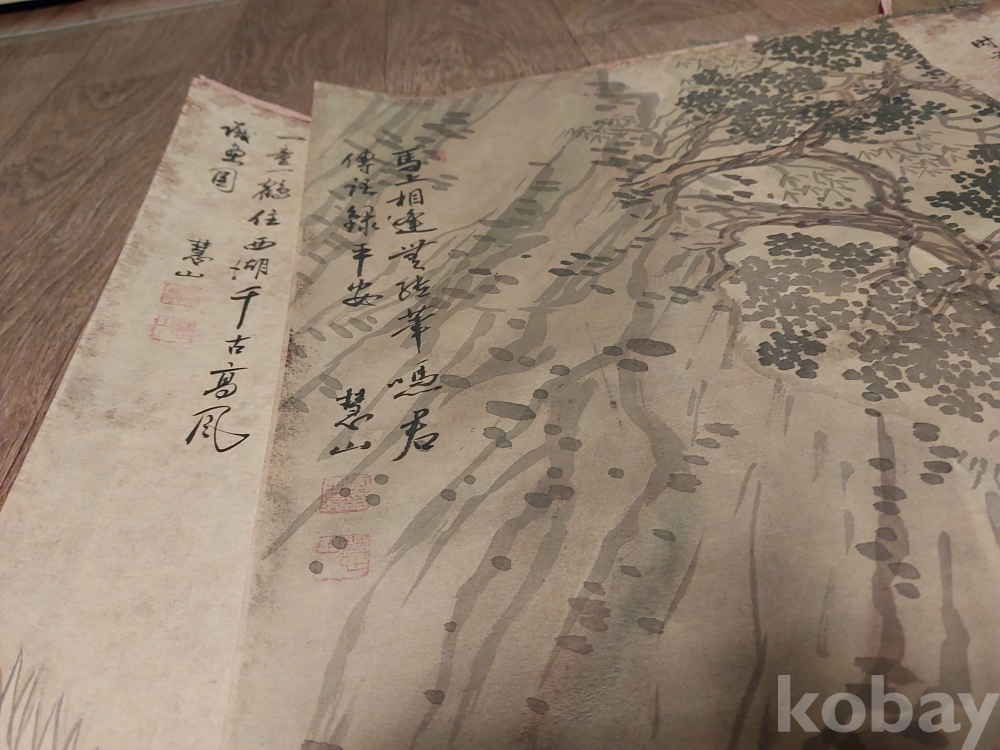 時
馬上相逢無紙筆憑君
傳語報平安
慧山
一童一鶴住西湖千古高風
慧山
kobay